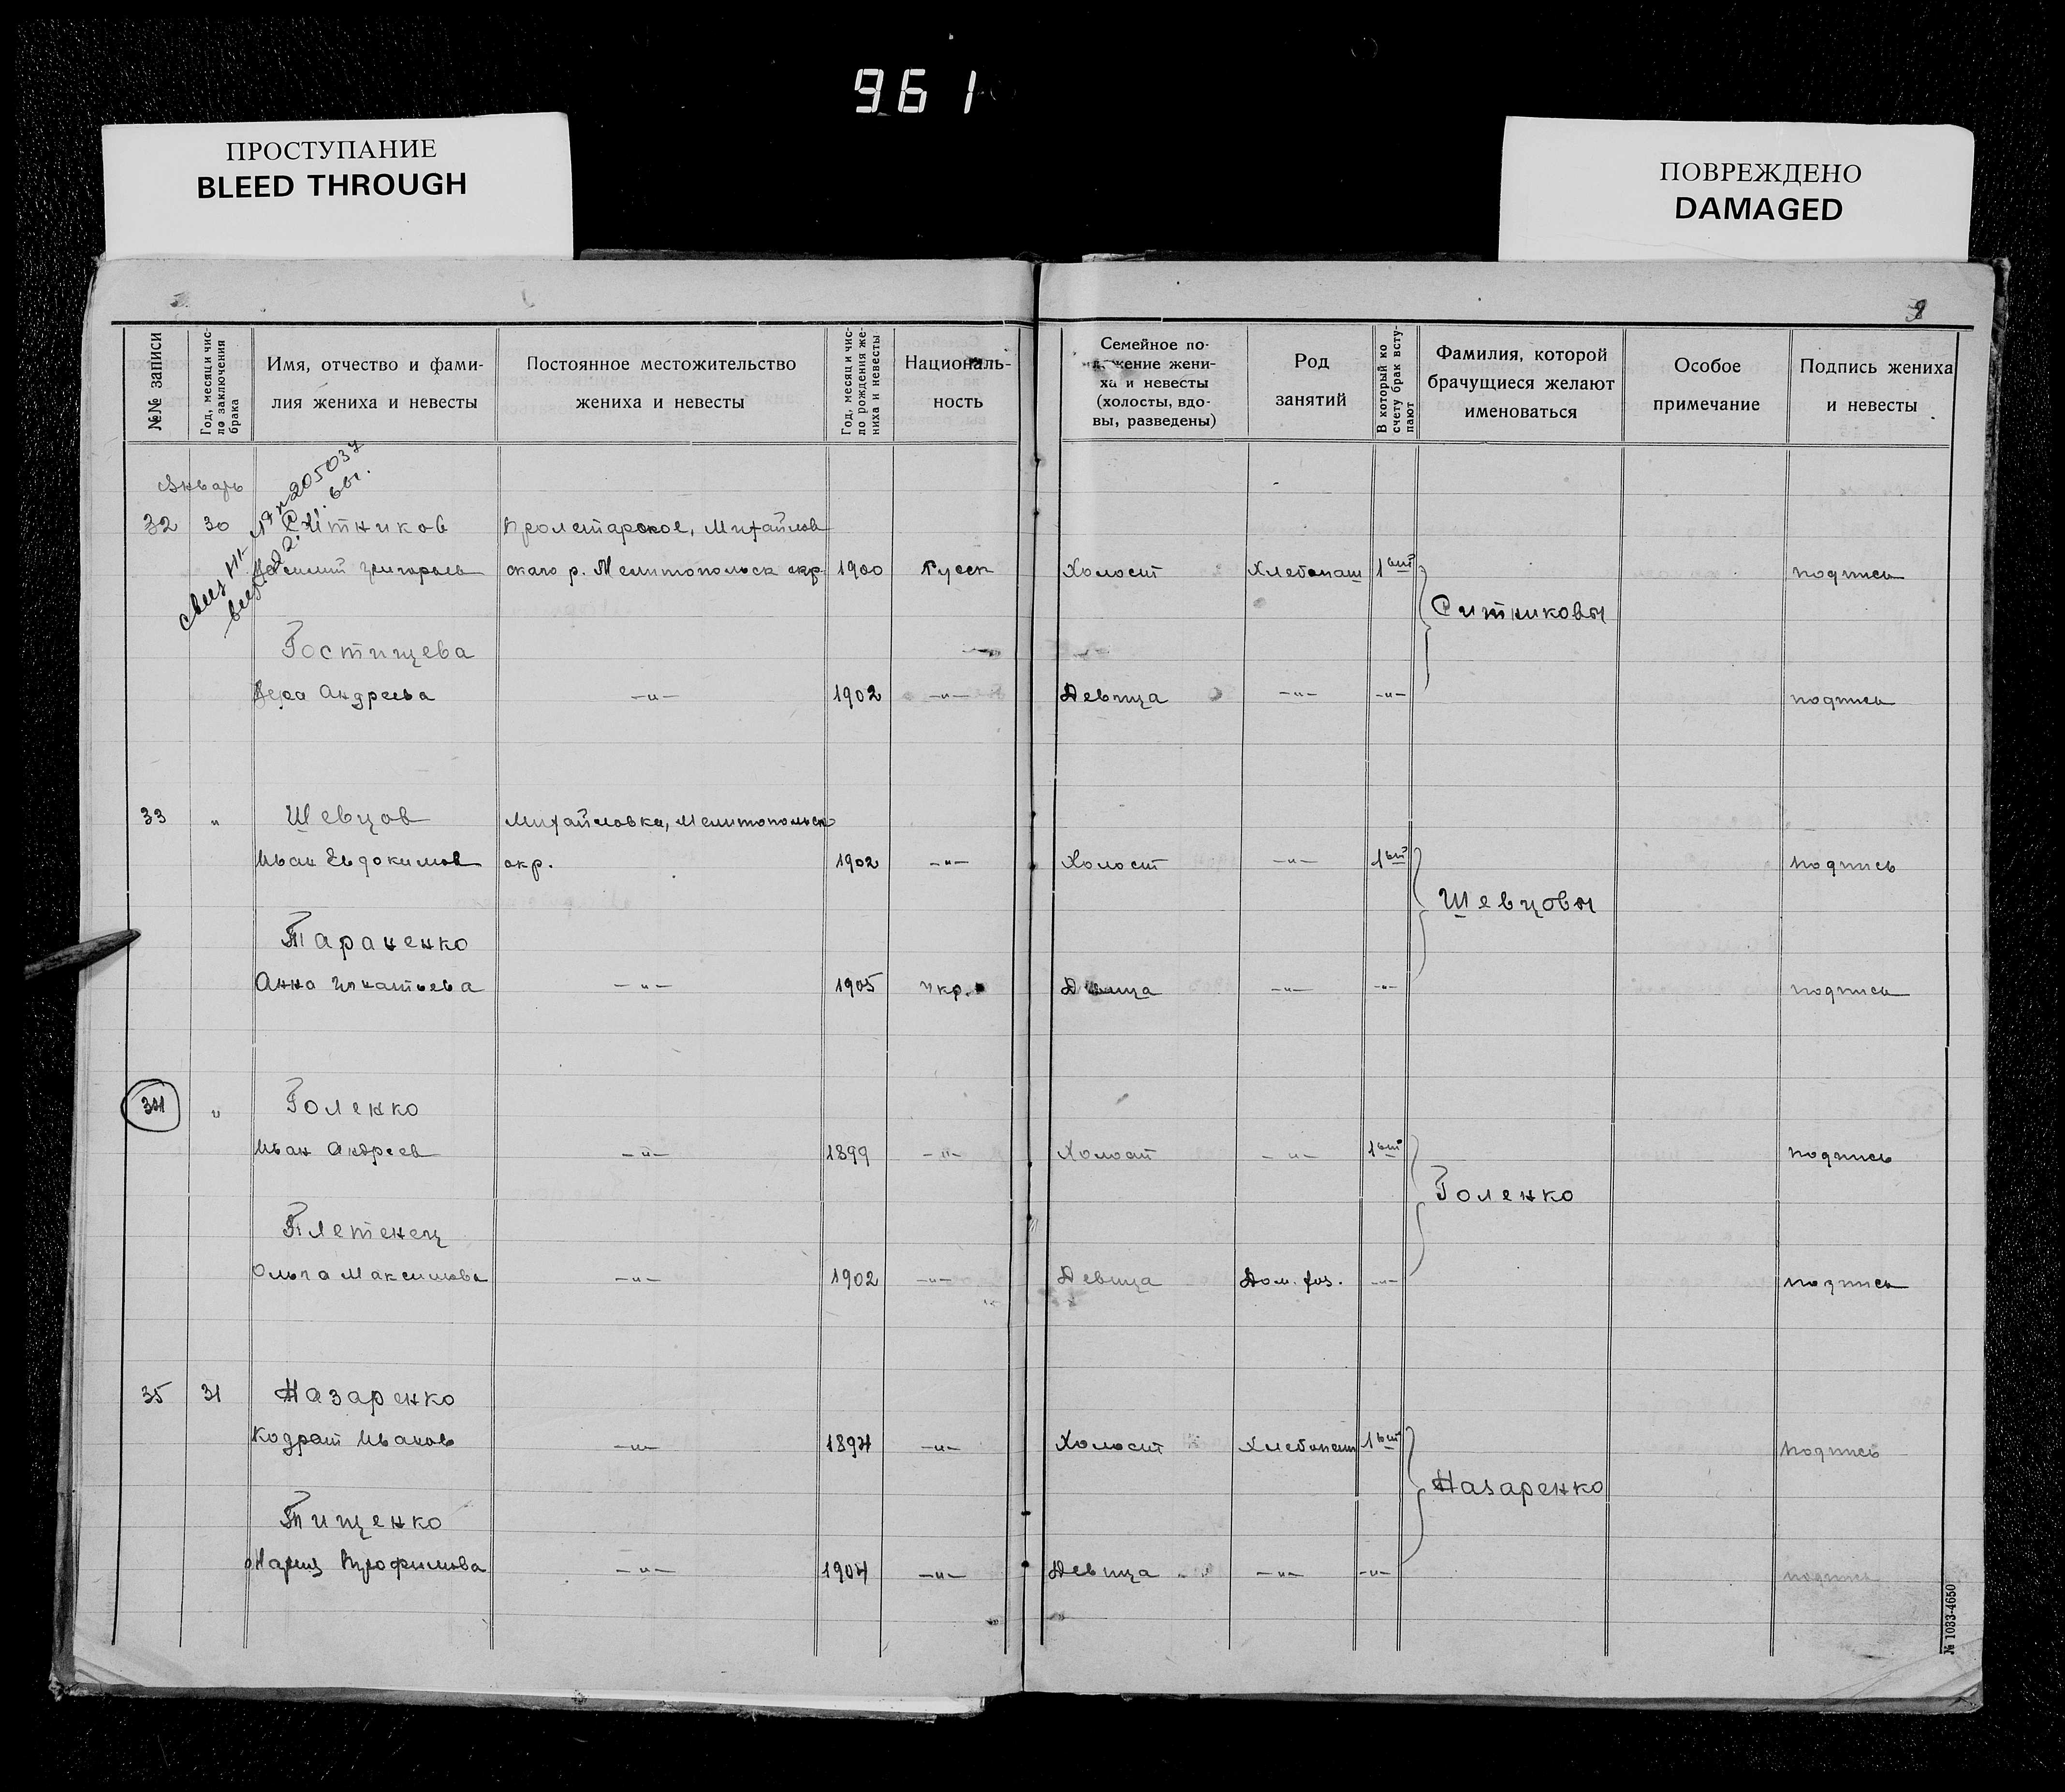 961
ПРОСТУПАНИЕ
BLEED THROUGH
ПОВРЕЖДЕНО
DAMAGED
№№ записи
Год, месяц и чис-
ло заключения
брака
Имя, отчество и фами-
лия жениха и невесты
Постоянное местожительство
жениха и невесты
Год, месяц и чис-
ло рождения же-
ниха и невесты
Националь-
ность
Семейное по-
ложение жени-
ха и невесты
(холосты, вдо-
вы, разведены)
Род
занятий
В который ко
счету брак всту-
пают
Фамилия, которой
брачущиеся желают
именоваться
Особое
примечание
Подпись жениха
и невесты
Январь
205037
32 30 Ситников Пролетарское, Михайлов
Григорьев около р. Мелитопольск окр 1900 Русск Холост Хлебопаш 1ый подпись
Ситниковы
Гостищева
Вера Андреева —„— 1902 —„— Девица —„— —„— подпись
33 „ Шевцов Михайловка, Мелитопольск
Иван Евдокимов окр. 1902 —„— Холост —„— 1ый подпись
Шевцовы
Тараненко
Анна Игнатьева —„— 1905 Укр. Девица —„— —„— подпись
34 „ Голенко
Иван Андреев —„— 1899 —„— Холост —„— 1ый подпись
Голенко
Плетенец
Ольга Максимова —„— 1902 —„— Девица Дом. хоз. —„— подпись
35 31 Назаренко
Кодрат Иванов —„— 1894 —„— Холост Хлебопаш 1ый подпись
Назаренко
Тищенко
Мария Трофимова —„— 1904 —„— Девица —„— —„— подпись
№ 1033-4650